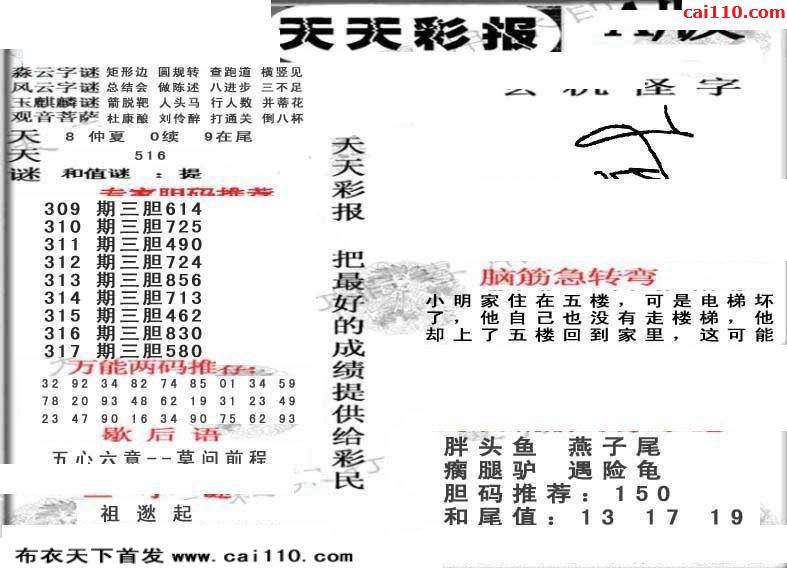 cai110.com
天天彩报
森云字谜 矩形边 圆规转 查跑道 横竖见
风云字谜 总结会 做陈述 八进步 三不足
玉麒麟谜 箭脱靶 人头马 行人数 并蒂花
观音菩萨 杜康酿 刘伶醉 打通关 倒八杯
天 8 仲夏 0续 9在尾
天 516
谜 和值谜 : 提
专家胆码推荐
309 期三胆614
310 期三胆725
311 期三胆490
312 期三胆724
313 期三胆856
314 期三胆713
315 期三胆462
316 期三胆830
317 期三胆580
万能两码推荐:
32 92 34 82 74 85 01 34 59
78 20 93 48 62 19 31 23 49
23 47 90 16 34 90 75 62 93
歇后语
五心六意--莫问前程
祖逖起
布衣天下首发 www.cai110.com
天天彩报 把最好的成绩提供给彩民
玄机怪字
脑筋急转弯
小明家住在五楼，可是电梯坏
了，他自己也没有走楼梯，他
却上了五楼回到家里，这可能
胖头鱼 燕子尾
瘸腿驴 遇险龟
胆码推荐: 150
和尾值: 13 17 19